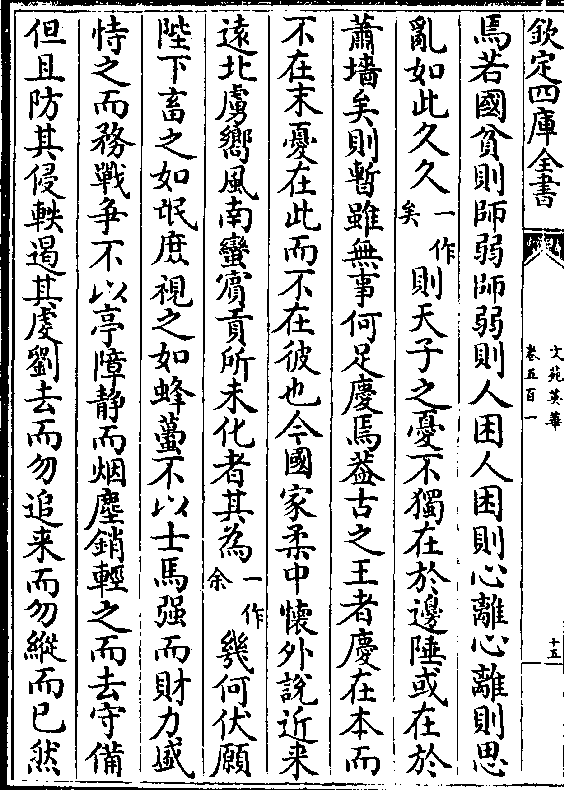 欽定四庫全書
文苑英華
卷五百一
十五
焉若國貧則師弱師弱則人困人困則心離心離則思
亂如此久久一作矣則天子之憂不獨在於邊陲或在於
蕭墻矣則暫雖無事何足慶焉葢古之王者慶在本而
不在末憂在此而不在彼也今國家柔中懷外說近来
遠北虜嚮風南蠻賔貢所未化者其為一作余幾何伏願
陛下畜之如氓庶視之如蜂蠆不以士馬强而財力盛
恃之而務戰争不以亭障静而烟塵銷輕之而去守備
但且防其侵軼遏其䖍劉去而勿追来而勿縱而已然